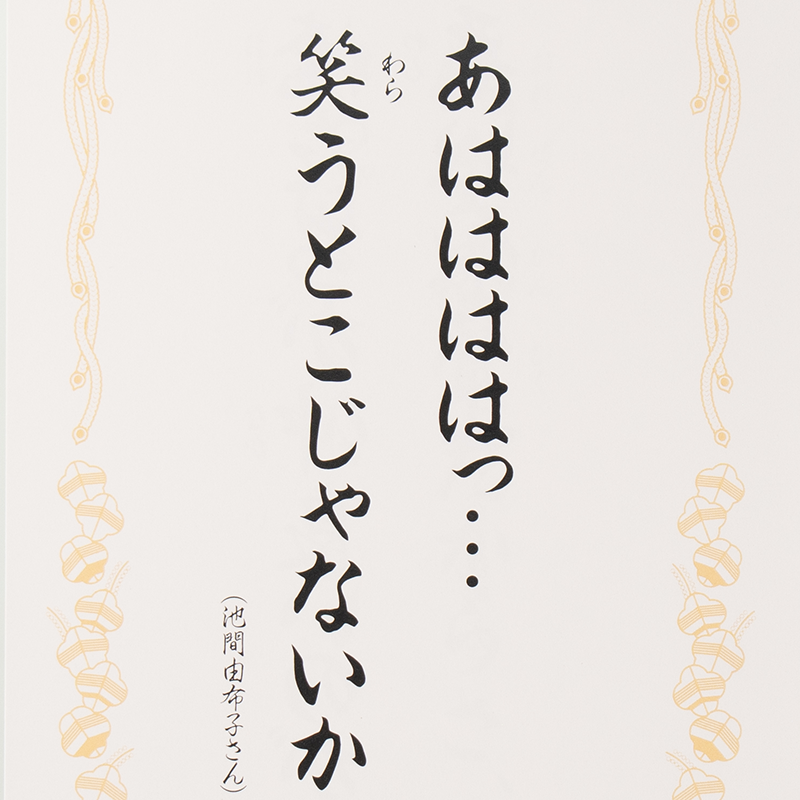 あはははは​っ…
笑うとこじゃないか
わら
(池間由布子さん)